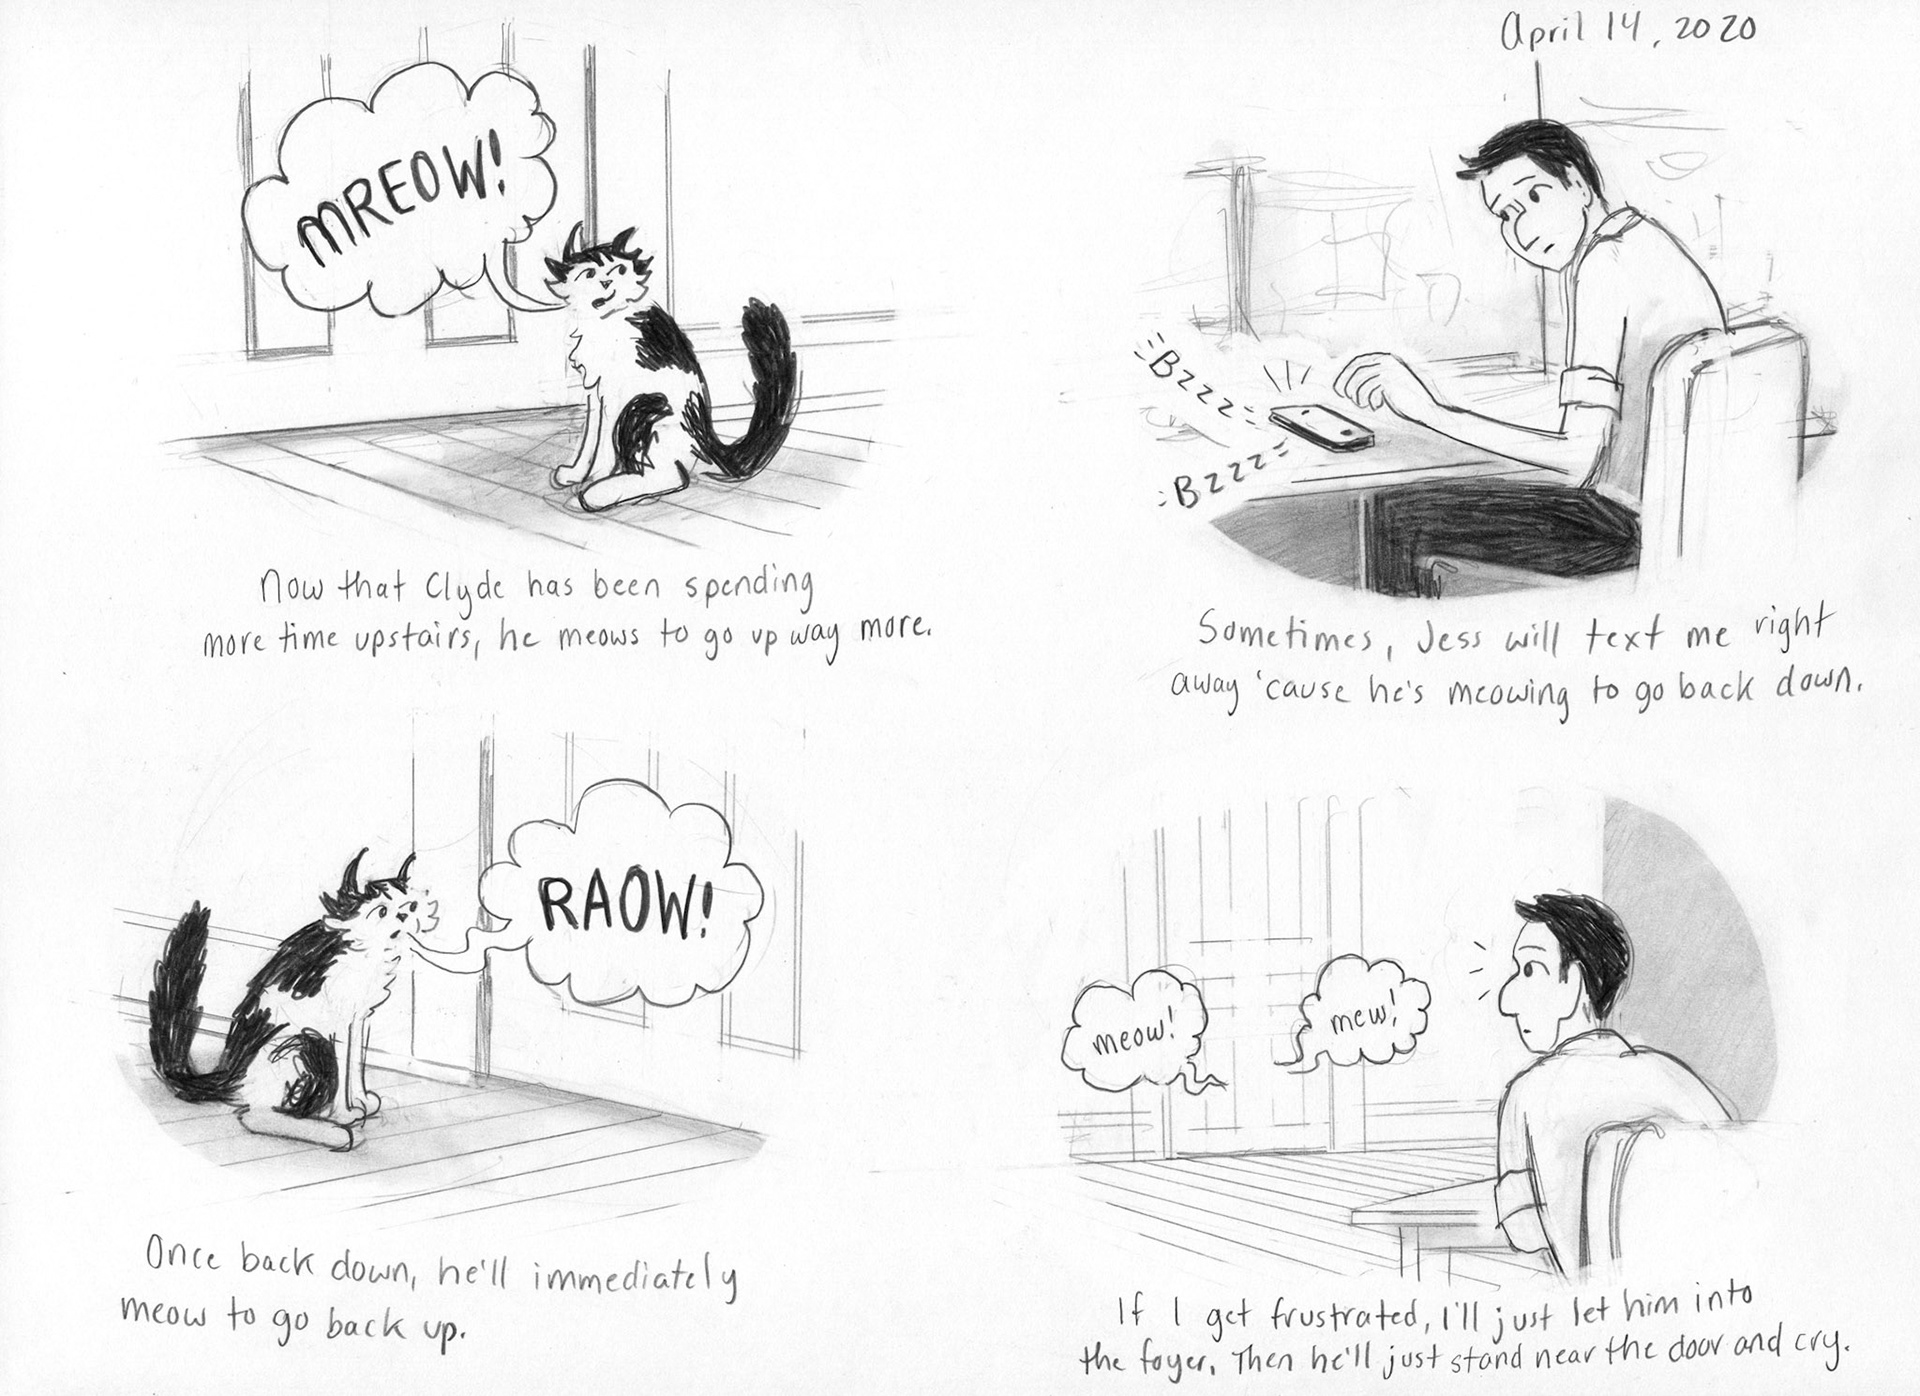 April 14, 2020
MREOW!
Now that Clyde has been spending
more time upstairs, he meows to go up way more.
Bzzz
Bzzz
Sometimes, Jess will text me right
away 'cause he's meowing to go back down.
RAOW!
Once back down, he'll immediately
meow to go back up.
meow!
mew!
If I get frustrated, I'll just let him into
the foyer. Then he'll just stand near the door and cry.